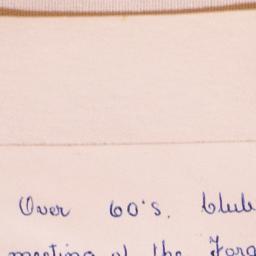 Over 60's. Club
meeting of the Forg